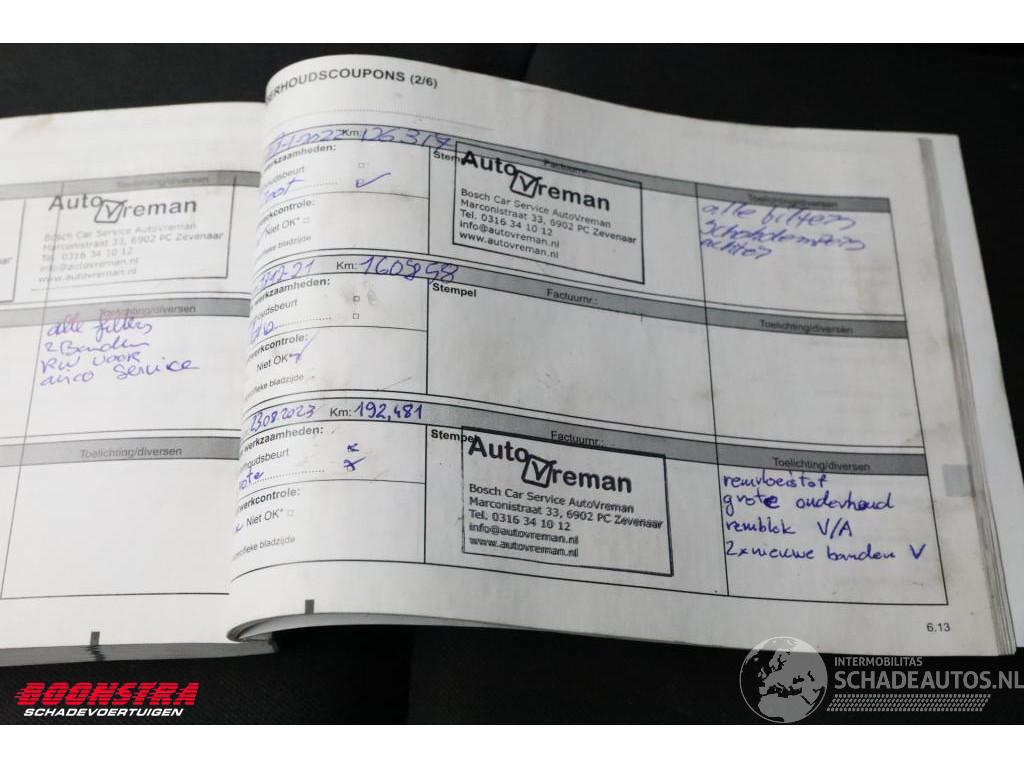 Toelichting/diversen
Auto Vreman
Bosch Car Service AutoVreman
Marconistraat 33, 6902 PC Zevenaar
Tel. 0316 34 10 12
info@autovreman.nl
www.autovreman.nl
Toelichting/diversen
alle filters
2 Banden
RW voor
airco service
Toelichting/diversen
ERHOUDSCOUPONS (2/6)
-1-2022 Km: 126.317
werkzaamheden:
houdsbeurt
Stem
Factuurnr.:
Toelichting/diversen
Auto Vreman
Bosch Car Service AutoVreman
Marconistraat 33, 6902 PC Zevenaar
Tel. 0316 34 10 12
info@autovreman.nl
www.autovreman.nl
werkcontrole:
Niet OK*
ifieke bladzijde
alle filters
achter
12-21 Km: 160898
werkzaamheden:
houdsbeurt
werkcontrole:
Niet OK*
ifieke bladzijde
Stempel
Factuurnr.:
Toelichting/diversen
23.08.2023 Km: 192,481
werkzaamheden:
houdsbeurt
rote
werkcontrole:
Niet OK*
ifieke bladzijde
Stempel
Factuurnr.:
Toelichting/diversen
Auto Vreman
Bosch Car Service AutoVreman
Marconistraat 33, 6902 PC Zevenaar
Tel. 0316 34 10 12
info@autovreman.nl
www.autovreman.nl
remvloeistof
grote onderhoud
remblok V/A
2x nieuwe banden V
6.13
BOONSTRA
SCHADEVOERTUIGEN
INTERMOBILITAS
SCHADEAUTOS.NL